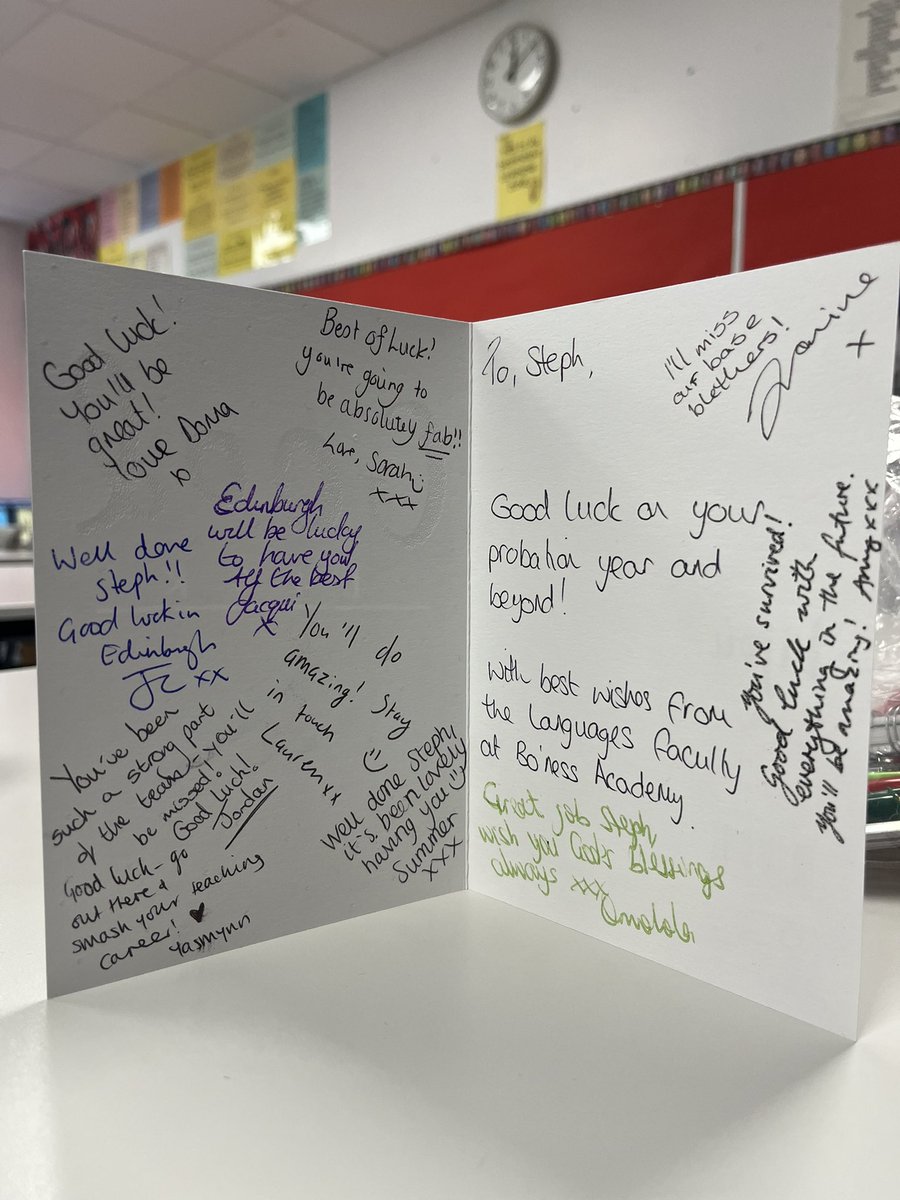 Good luck!
You'll be
great!
love Donna
Best of Luck!
you're going to
be absolutely fab!!
Love, Sarah
xxx
Edinburgh
will be lucky
to have you!
All the best
Jacqui
x
Well done
Steph!!
Good luck in
Edinburgh
xx
You'll do
amazing! Stay
in touch
Lauren xx
You've been
such a strong part
of the team - you'll
be missed!
Good luck!
Jordan
Well done Steph,
it's been lovely
having you
Summer
xxx
Good luck - go
out there &
smash your teaching
career!
Yasmynn
To, Steph,
I'll miss
our base
blethers!
Janine
x
Good luck on your
probation year and
beyond!
With best wishes from
the Languages Faculty
at Bo'ness Academy.
You've survived!
Good luck with
everything in the future.
You'll be amazing! Amy xxx
Great job Steph,
wish you God's blessings
always xxx